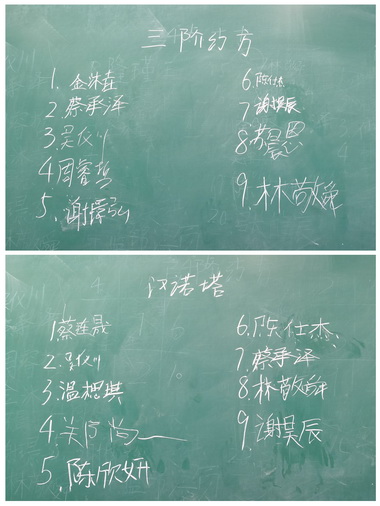 三阶幻方
1. 金沐
2 蔡承泽
3.吴仪川
4周睿哲
5、谢择弘
6.陈仕杰
7谢昊辰
8 苏晨恩
9. 林敬
汉诺塔
1.蔡连晟
2.吴仪川
3.温想琪
4.关
5.陈欣妍
6.陈仕杰
7.蔡承泽
8.林敬
9.谢昊辰